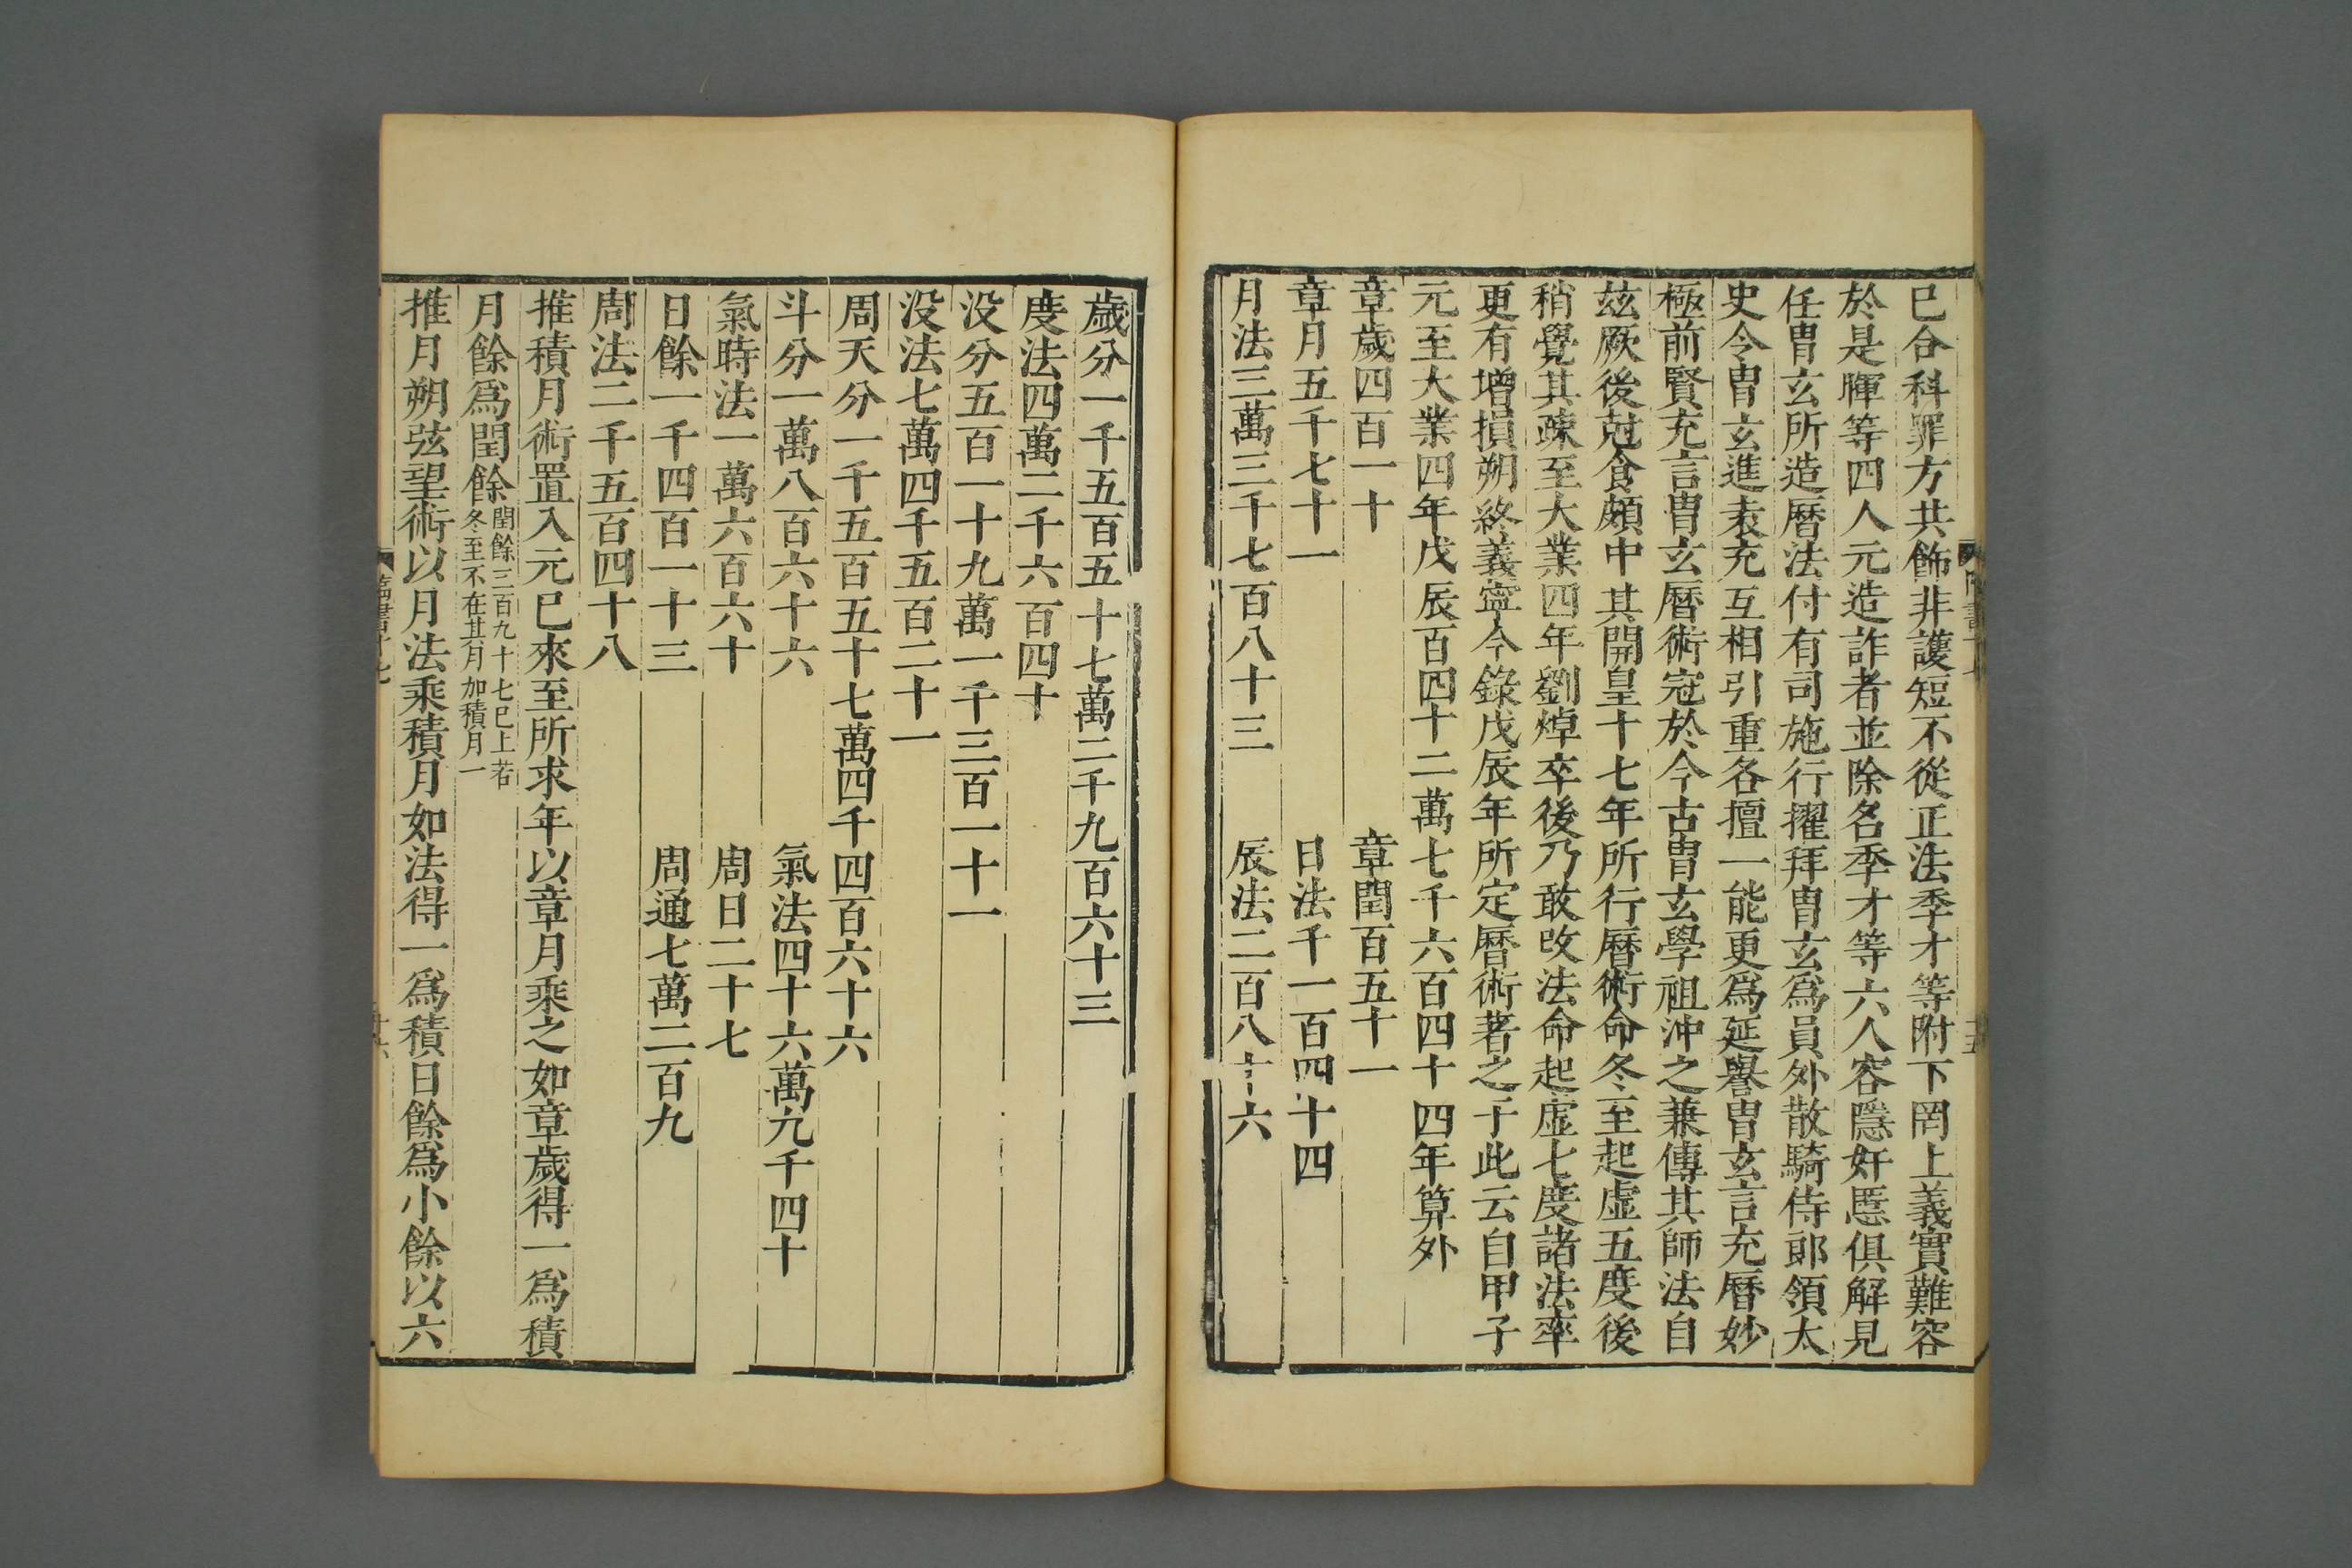 已合科罪方共飾非護短不從正法季才等附下罔上義實難容
於是暉等四人元造詐者並除名季才等六人容隱奸慝俱解見
任胄玄所造曆法付有司施行擢拜胄玄爲員外散騎侍郎領太
史令胄玄進袁充互相引重各擅一能更爲延譽胄玄言充曆妙
極前賢充言胄玄曆術冠於今古胄玄學祖沖之兼傳其師法自
玆厥後尅食頗中其開皇十七年所行曆術命冬至起虛五度後
稍覺其疎至大業四年劉焯卒後乃敢改法命起虛七度諸法率
更有增損朔終義寧今錄戊辰年所定曆術著之于此云自甲子
元至大業四年戊辰百四十二萬七千六百四十四年算外
章歲四百一十 章閏百五十一
章月五千七十一 日法千一百四十四
月法三萬三千七百八十三 辰法二百八十六
歲分一千五百五十七萬二千九百六十三
度法四萬二千六百四十
没分五百一十九萬一千三百一十一
没法七萬四千五百二十一
周天分一千五百五十七萬四千四百六十六
斗分一萬八百六十六 氣法四十六萬九千四十
氣時法一萬六百六十 周日二十七
日餘一千四百一十三 周通七萬二百九
周法二千五百四十八
推積月術置入元已來至所求年以章月乘之如章歲得一爲積
月餘爲閏餘閏餘三百九十七已上若
冬至不在其月加積月一
推月朔弦望術以月法乘積月如法得一爲積日餘爲小餘以六